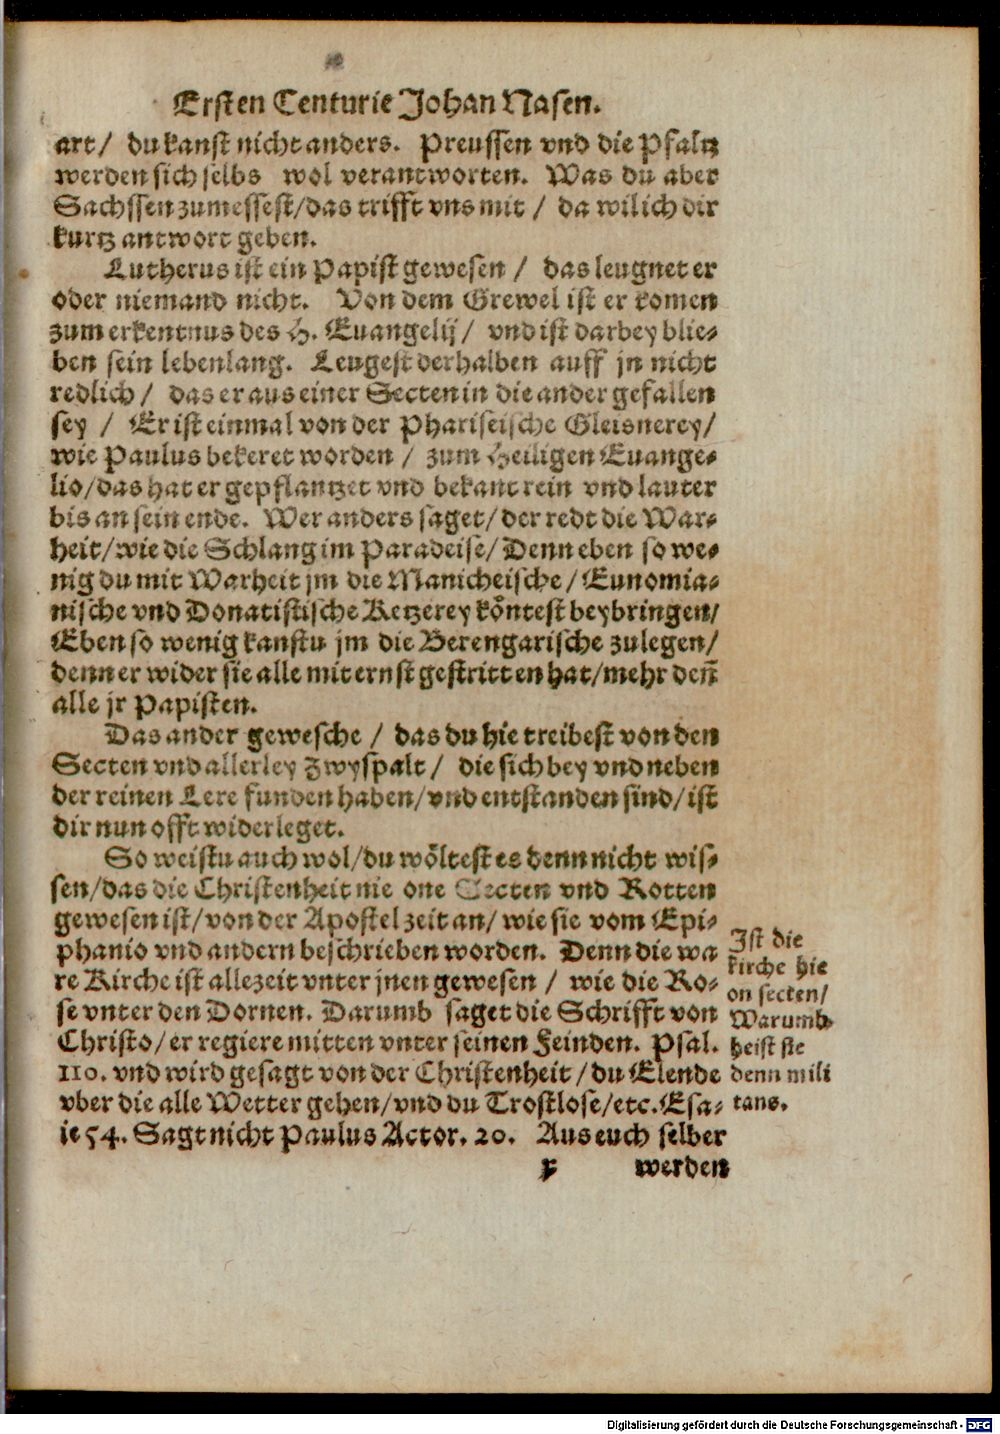 Ersten Centurie Johan Nasen.
art/ du kanst nicht anders. Preussen vnd die Pfaltz
werden sich selbs wol verantworten. Was du aber
Sachssen zumessest/das trifft vns mit / da wil ich dir
kurtz antwort geben.
Lutherus ist ein Papist gewesen / das leugnet er
oder niemand nicht. Von dem Grewel ist er komen
zum erkentnus des H. Euangelij/ vnd ist darbey blie-
ben sein lebenlang. Leugest derhalben auff jn nicht
redlich / das er aus einer Secten in die ander gefallen
sey / Er ist einmal von der Phariseische Gleisnerey/
wie Paulus bekeret worden / zum Heiligen Euange-
lio/das hat er gepflantzet vnd bekant rein vnd lauter
bis an sein ende. Wer anders saget/der redt die War-
heit/wie die Schlang im Paradeise/Denn eben so we-
nig du mit Warheit jm die Manicheische/Eunomia-
nische vnd Donatistische Ketzerey köntest beybringen/
Eben so wenig kanstu jm die Berengarische zulegen/
denn er wider sie alle mit ernst gestritten hat/mehr deñ
alle jr Papisten.
Das ander gewesche / das du hie treibest von den
Secten vnd allerley Zwyspalt/ die sich bey vnd neben
der reinen Lere funden haben/vnd entstanden sind/ist
dir nun offt widerleget.
So weistu auch wol/du wöltest es denn nicht wis-
sen/das die Christenheit nie one Secten vnd Rotten
gewesen ist/von der Apostel zeit an/wie sie vom Epi-
phanio vnd andern beschrieben worden. Denn die wa
re Kirche ist allezeit vnter jnen gewesen / wie die Ro-
se vnter den Dornen. Darumb saget die Schrifft von
Christo/er regiere mitten vnter seinen Feinden. Psal.
110. vnd wird gesagt von der Christenheit/du Elende
vber die alle Wetter gehen/vnd du Trostlose/etc. Esa-
ie 54. Sagt nicht Paulus Actor. 20. Aus euch selber
Ist die
kirche hie
on secten/
Warumb
heist sie
denn mili
tans.
x werden
Digitalisierung gefördert durch die Deutsche Forschungsgemeinschaft - DFG